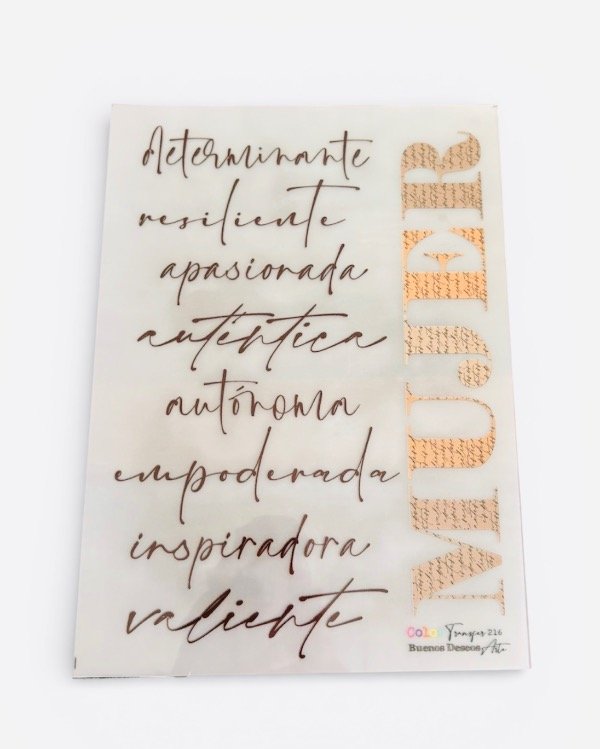 determinante
resiliente
apasionada
auténtica
autónoma
empoderada
inspiradora
valiente
MUJER
Color Transfer 216
Buenos Deseos Arte